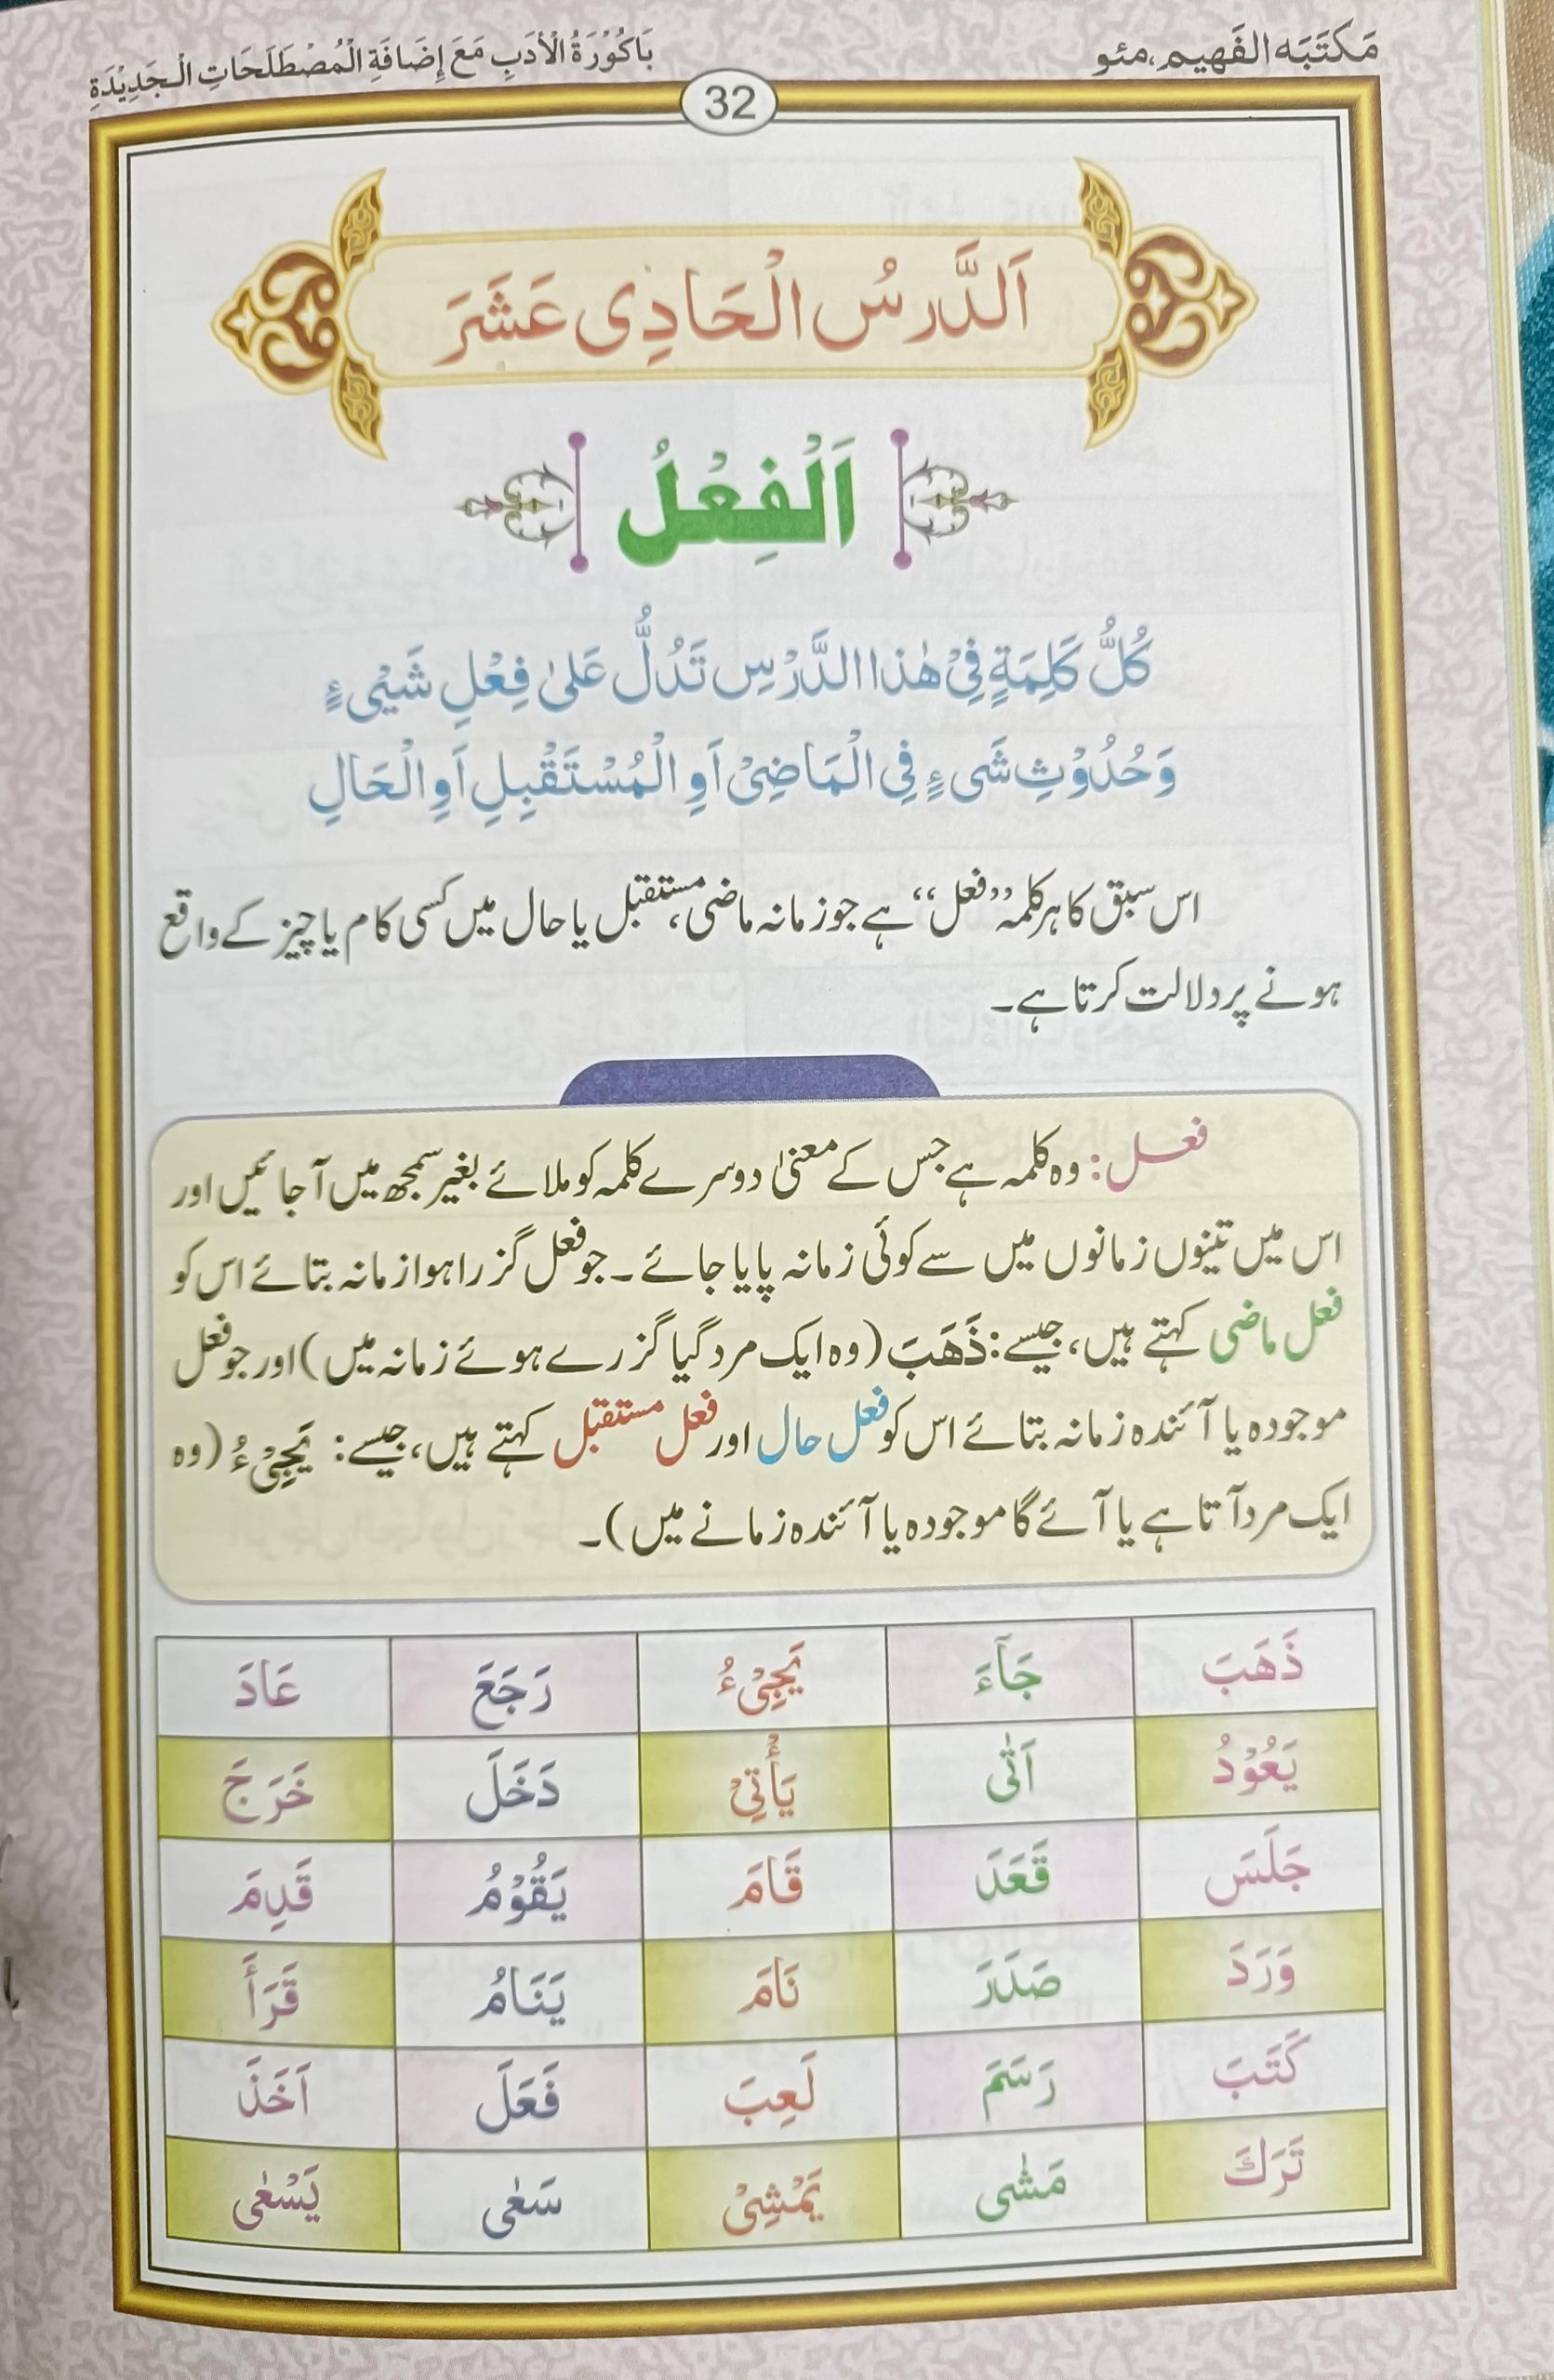 مَکتَبَه الفَهیم،مئو
بَاكُوْرَةُ الْأَدَبِ مَعَ إِضَافَةِ الْمُصْطَلَحَاتِ الْجَدِيْدَةِ
32
اَلدَّرسُ الْحَادِی عَشَرَ
اَلْفِعْلُ
كُلُّ كَلِمَةٍ فِيْ هٰذا الدَّرْسِ تَدُلُّ عَلیٰ فِعْلِ شَيْیءٍ
وَحُدُوْثِ شَیءٍ فِي الْمَاضِيْ اَوِ الْمُسْتَقْبِلِ اَوِ الْحَالِ
اس سبق کا ہر کلمہ ’’فعل‘‘ ہے جو زمانہ ماضی، مستقبل یا حال میں کسی کام یا چیز کے واقع
ہونے پر دلالت کرتا ہے۔
فعل: وہ کلمہ ہے جس کے معنیٰ دوسرے کلمہ کو ملائے بغیر سمجھ میں آجائیں اور
اس میں تینوں زمانوں میں سے کوئی زمانہ پایا جائے۔ جو فعل گزرا ہوا زمانہ بتائے اس کو
فعل ماضی کہتے ہیں، جیسے: ذَهَبَ (وہ ایک مرد گیا گزرے ہوئے زمانہ میں) اور جو فعل
موجودہ یا آئندہ زمانہ بتائے اس کو فعل حال اور فعل مستقبل کہتے ہیں، جیسے: يَجِيْءُ (وہ
ایک مرد آتا ہے یا آئے گا موجودہ یا آئندہ زمانے میں)۔
ذَهَبَ جَآءَ يَجِيْءُ رَجَعَ عَادَ
يَعُوْدُ اَتٰی يَأْتِيْ دَخَلَ خَرَجَ
جَلَسَ قَعَدَ قَامَ يَقُوْمُ قَدِمَ
وَرَدَ صَدَرَ نَامَ يَنَامُ قَرَأَ
كَتَبَ رَسَمَ لَعِبَ فَعَلَ اَخَذَ
تَرَكَ مَشٰی يَمْشِيْ سَعٰی يَسْعٰی